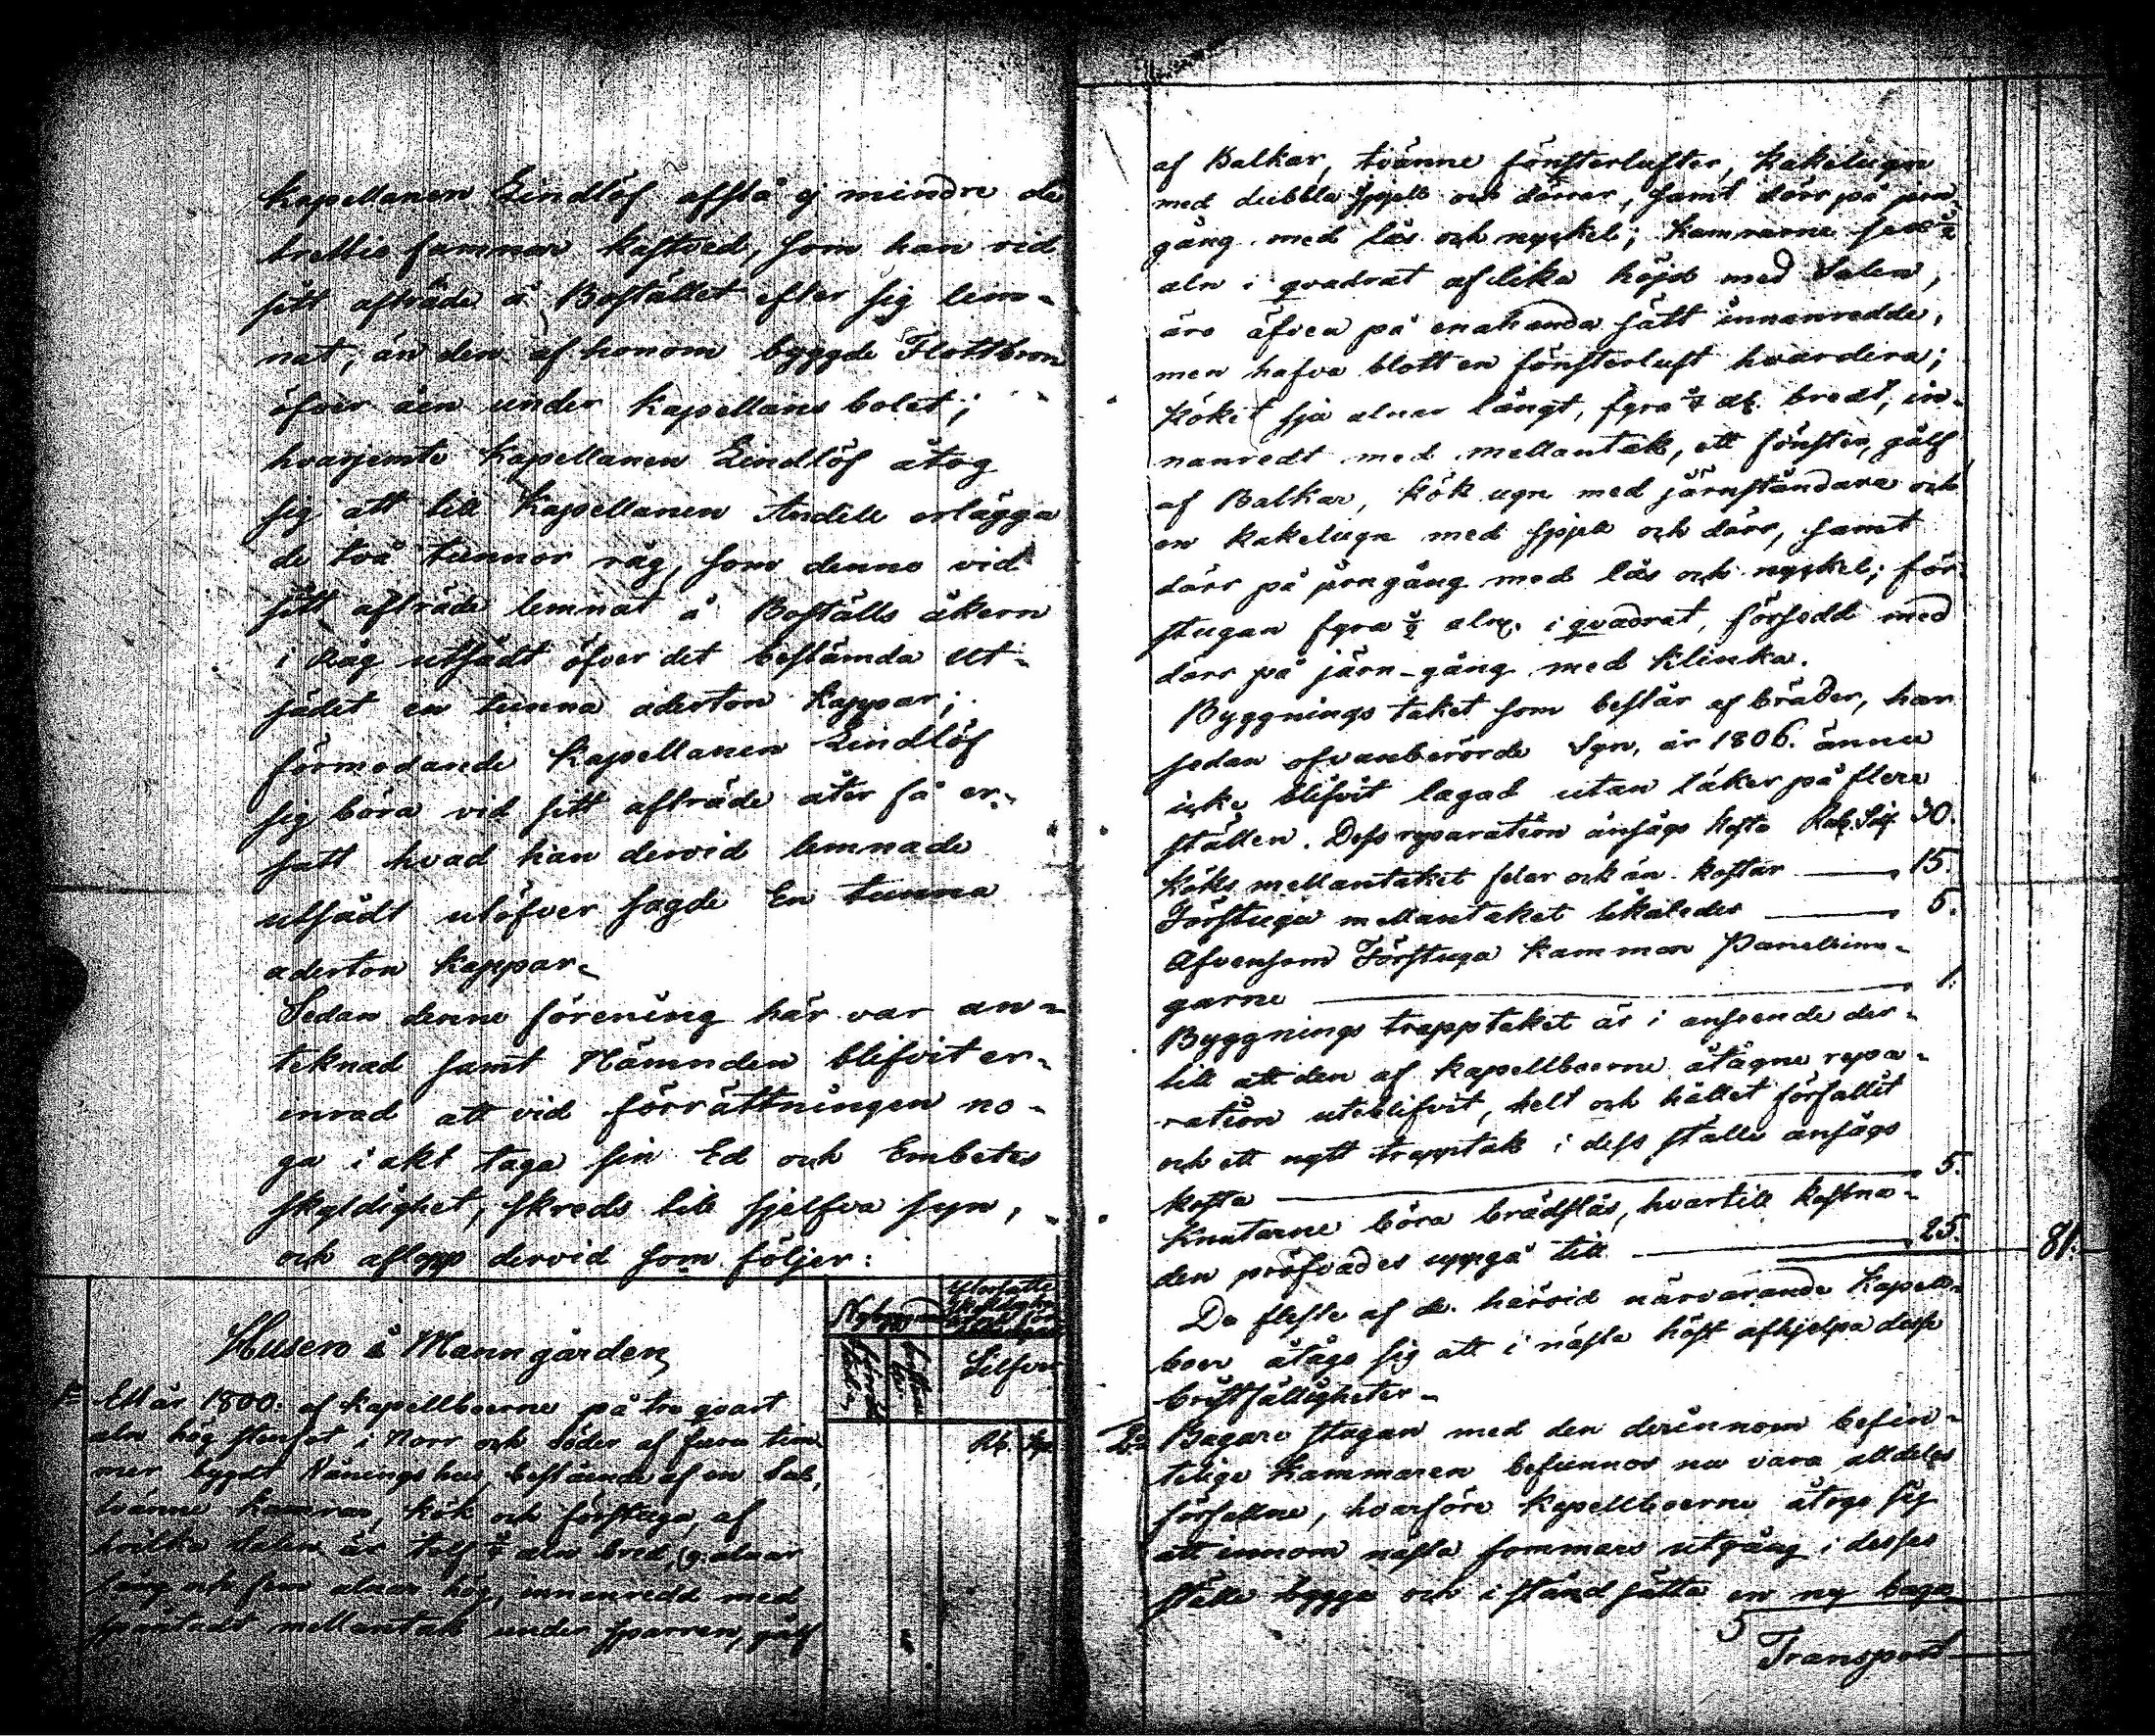 Kapellanen Lindlöf afstå ej mindre de
trettio famnar kastved, som han vid
sitt afträde å Bostället efter sig lem-
nat, än den af honom byggde Flottbron
öfver åen under Kapellans bolet;
hvarjemte Kapellanen Lindlöf åtog
sig att till Kapellanen Andell erlägga
de två tunnor råg, som denne vid
sitt afträde lemnat å Boställs åkern
i Råg utsådt öfver det bestämda ut-
sädet en tunna aderton Kappar;
förmodande Kapellanen Lindlöf
sig böra vid sitt afträde åter få er-
satt hvad han dervid lemnade
utsådt utöfver sagde En tunna
aderton Kappar.
Sedan denne förening här var an-
teknad samt Nämnden blifvit er-
inrad att vid förrättningen no-
ga i akt taga sin Ed och Embetes
skyldighet, skreds till sjelfva syn,
och aflopp dervid som följer:
Husen å Manngården
Silfver
Rb. Kop.
1o Ett år 1800. af Kapellboerne på tre qvart
aln hög stenfot i Norr och Söder af furu tim-
mer bygdt Vånings hus, bestående af en Sal,
tvänne Kamrar, Kök och förstuga, af
hvilka Salen är tolf aln bred, 9. alnar
lång och fem alnar hög, innanredd med
spåntadt mellantak under sparren, gålf
af Balkar, tvänne fönsterlufter, Kakelugn
med dubbla spjell och dörrar, samt dörr på jern-
gång med lås och nyckel; Kamrarne sex ½
aln i qvadrat af lika höjd med Salen,
äro äfven på enahanda sätt innanredde,
men hafva blott en fönsterluft hvardera;
Köket sju alnar långt, fyra ¾ al. bredt, in-
nanredt med mellantak, ett fönster, gålf
af Balkar, Kök ugn med järnständare och
en kakelugn med spjell och dörr, samt
dörr på jerngång med lås och nyckel; för-
stugan fyra ½ aln. i qvadrat, försedd med
dörr på järn-gång med Klinka.
Byggnings taket som består af bräder, har
sedan ofvanberörde Syn, år 1806. ännu
icke blifvit lagad utan läker på flere
ställen. Dess reparation ansågs kosta Rub. Silf. 30.
Köks mellantaket felar ock än. kostar 15.
Förstuga mellantaket likaledes 5.
Äfvensom Förstuga Kammar Panelnin-
garne 1.
Byggnings trapptaket är i anseende der-
till att den af Kapellboerne åtagne repa-
ration uteblifvit, helt och hållet förfallit
och ett nytt trapptak i dess ställe ansågs
kosta 5.
Knutarne böra brädslås, hvartill kostna-
den pröfvades uppgå till 25. 81.
De fleste af de härvid närvarande Kapell-
boer åtogo sig att i nästa höst afhjelpa desse
bristfälligheter.
2o Bagare stugan med den derinnom befin-
telige Kammaren befunnos nu vara alldeles
förfallne, hvarföre Kapellboerne åtogo sig
att innom nästa sommars utgång i desses
ställe bygga och i stånd sätta en ny baga-
Transport